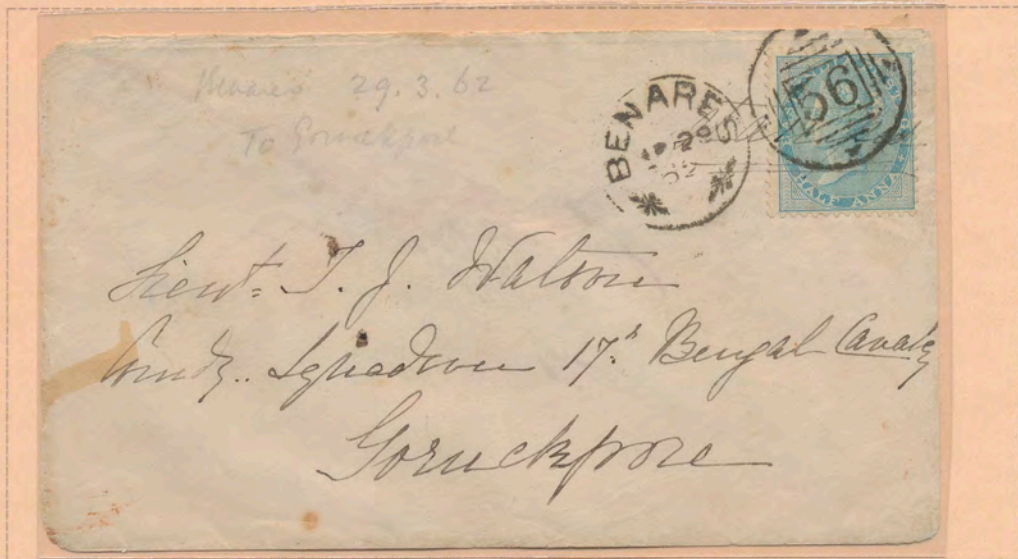 Benares 29.3.62
To Goruckpore
BENARES
29
62
56
HALF ANNA
Lieut: T. J. Watson
Comdg.. Squadron 17th Bengal Cavalry
Goruckpore